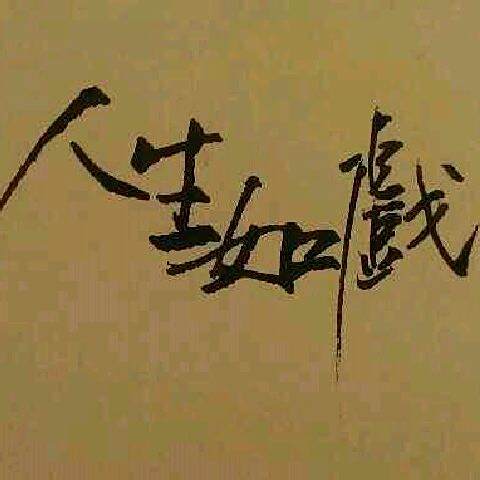 人生如戲